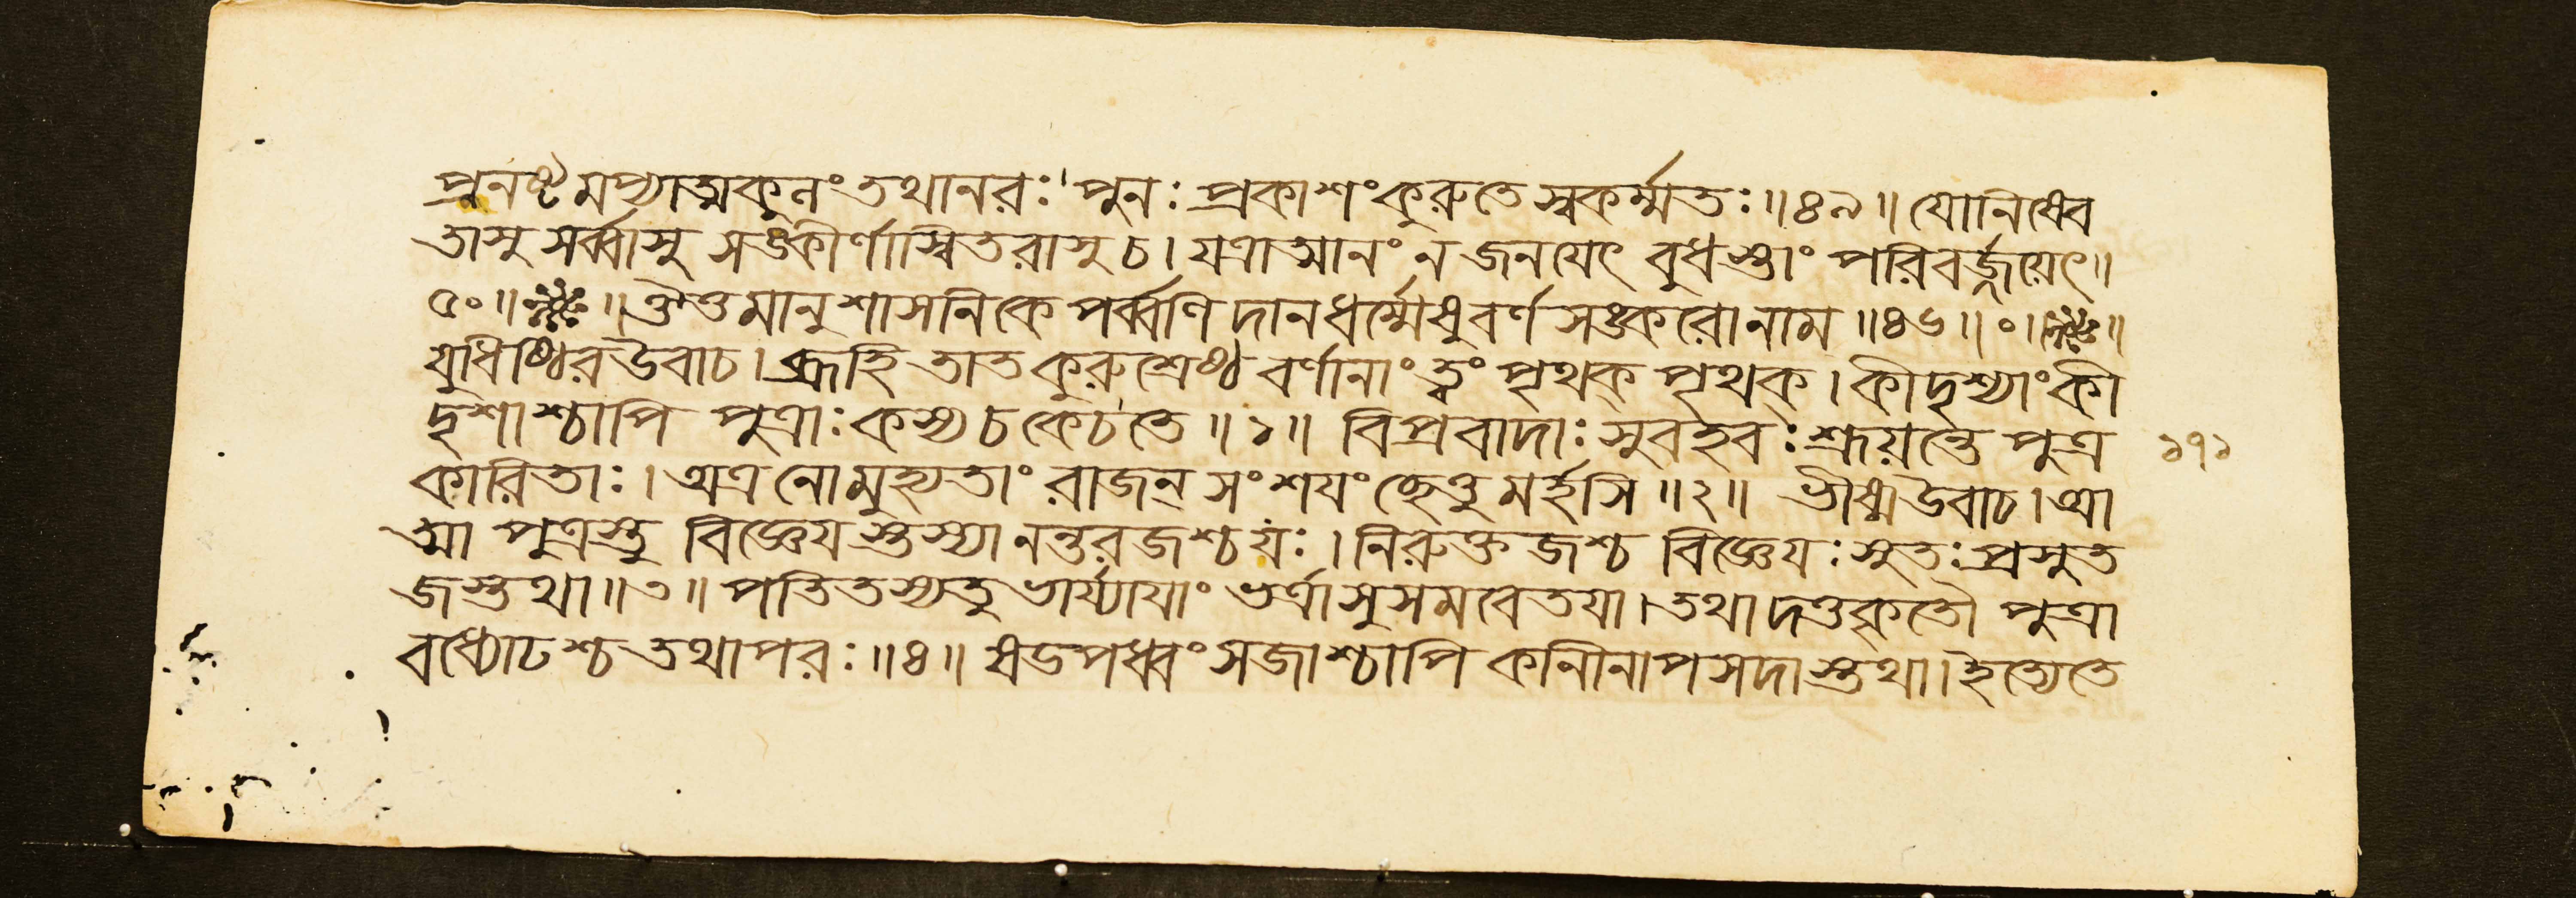 প্রনষ্টমপ্যাত্মকুলং তথানরঃ। পুনঃ প্রকাশং কুরুতে স্বকর্ম্মতঃ॥৪৯॥ যোনিষ্বে
তাসু সর্ব্বাসু সঙ্কীর্ণাস্বিতরাসু চ। যত্রাত্মানং ন জনযেৎ বুধস্তাং পরিবর্জ্জয়েৎ॥
৫০॥ ॥ ঔত্তমানুশাসনিকে পর্ব্বণি দানধর্ম্মেষু বর্ণসঙ্করো নাম ॥৪৬॥০॥ ॥
যুধিষ্ঠির উবাচ। ব্রূহি তাত কুরুশ্রেষ্ঠ বর্ণানাং ত্বং পৃথক্ পৃথক্। কীদৃশ্যাং কী
দৃশাশ্চাপি পুত্রাঃ কস্য চ কে চ তে ॥১॥ বিপ্রবাদাঃ সুবহবঃ শ্রূয়ন্তে পুত্র
কারিতাঃ। অত্র নো মুহ্যতাং রাজন্ সংশযং ছেত্তুমর্হসি ॥২॥ ভীষ্ম উবাচ। আ
ত্মা পুত্রস্তু বিজ্ঞেযস্তস্যানন্তরজশ্চ যঃ। নিরুক্তজশ্চ বিজ্ঞেযঃ সুতঃ প্রসৃত
জস্তথা॥৩॥ পতিতস্য তু ভার্য্যাযাং ভর্ত্রা সুসমবেতযা। তথা দত্তকৃতৌ পুত্রা
বধ্যোঢশ্চ তথাপরঃ॥৪॥ ষডপধ্বংসজাশ্চাপি কানীনাপসদাস্তথা। ইত্যেতে
১৭১